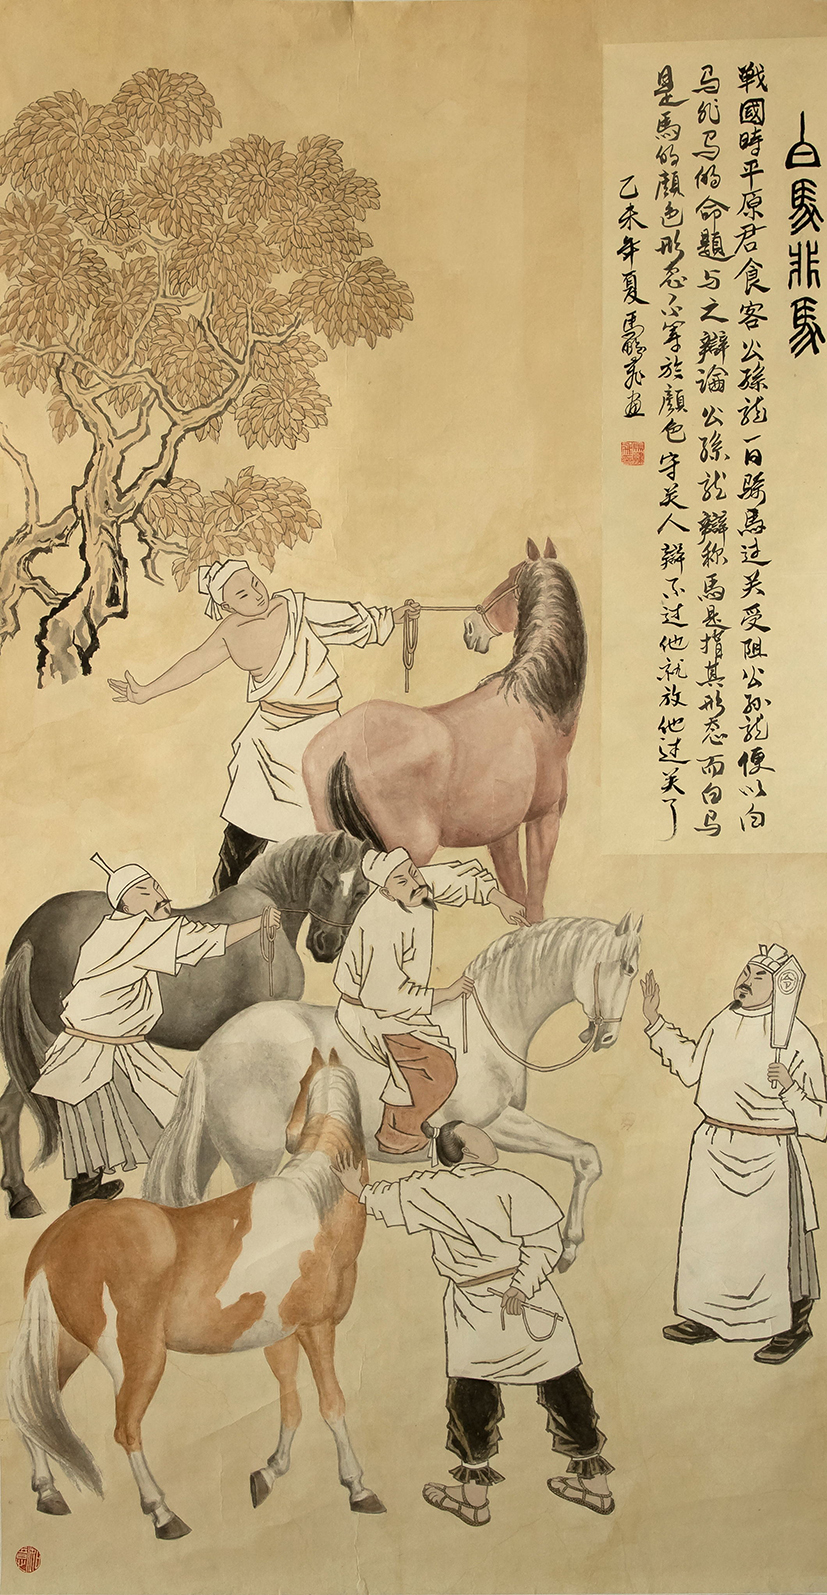 白馬非馬
戰國時平原君食客公孫龍一日騎馬过关受阻公孙龍便以白
马非马的命題与之辯論公孫龍辯称馬是指其形态而白马
是馬的顏色形态不等於顏色守关人辯不过他就放他过关了
乙未年夏馬畫
令